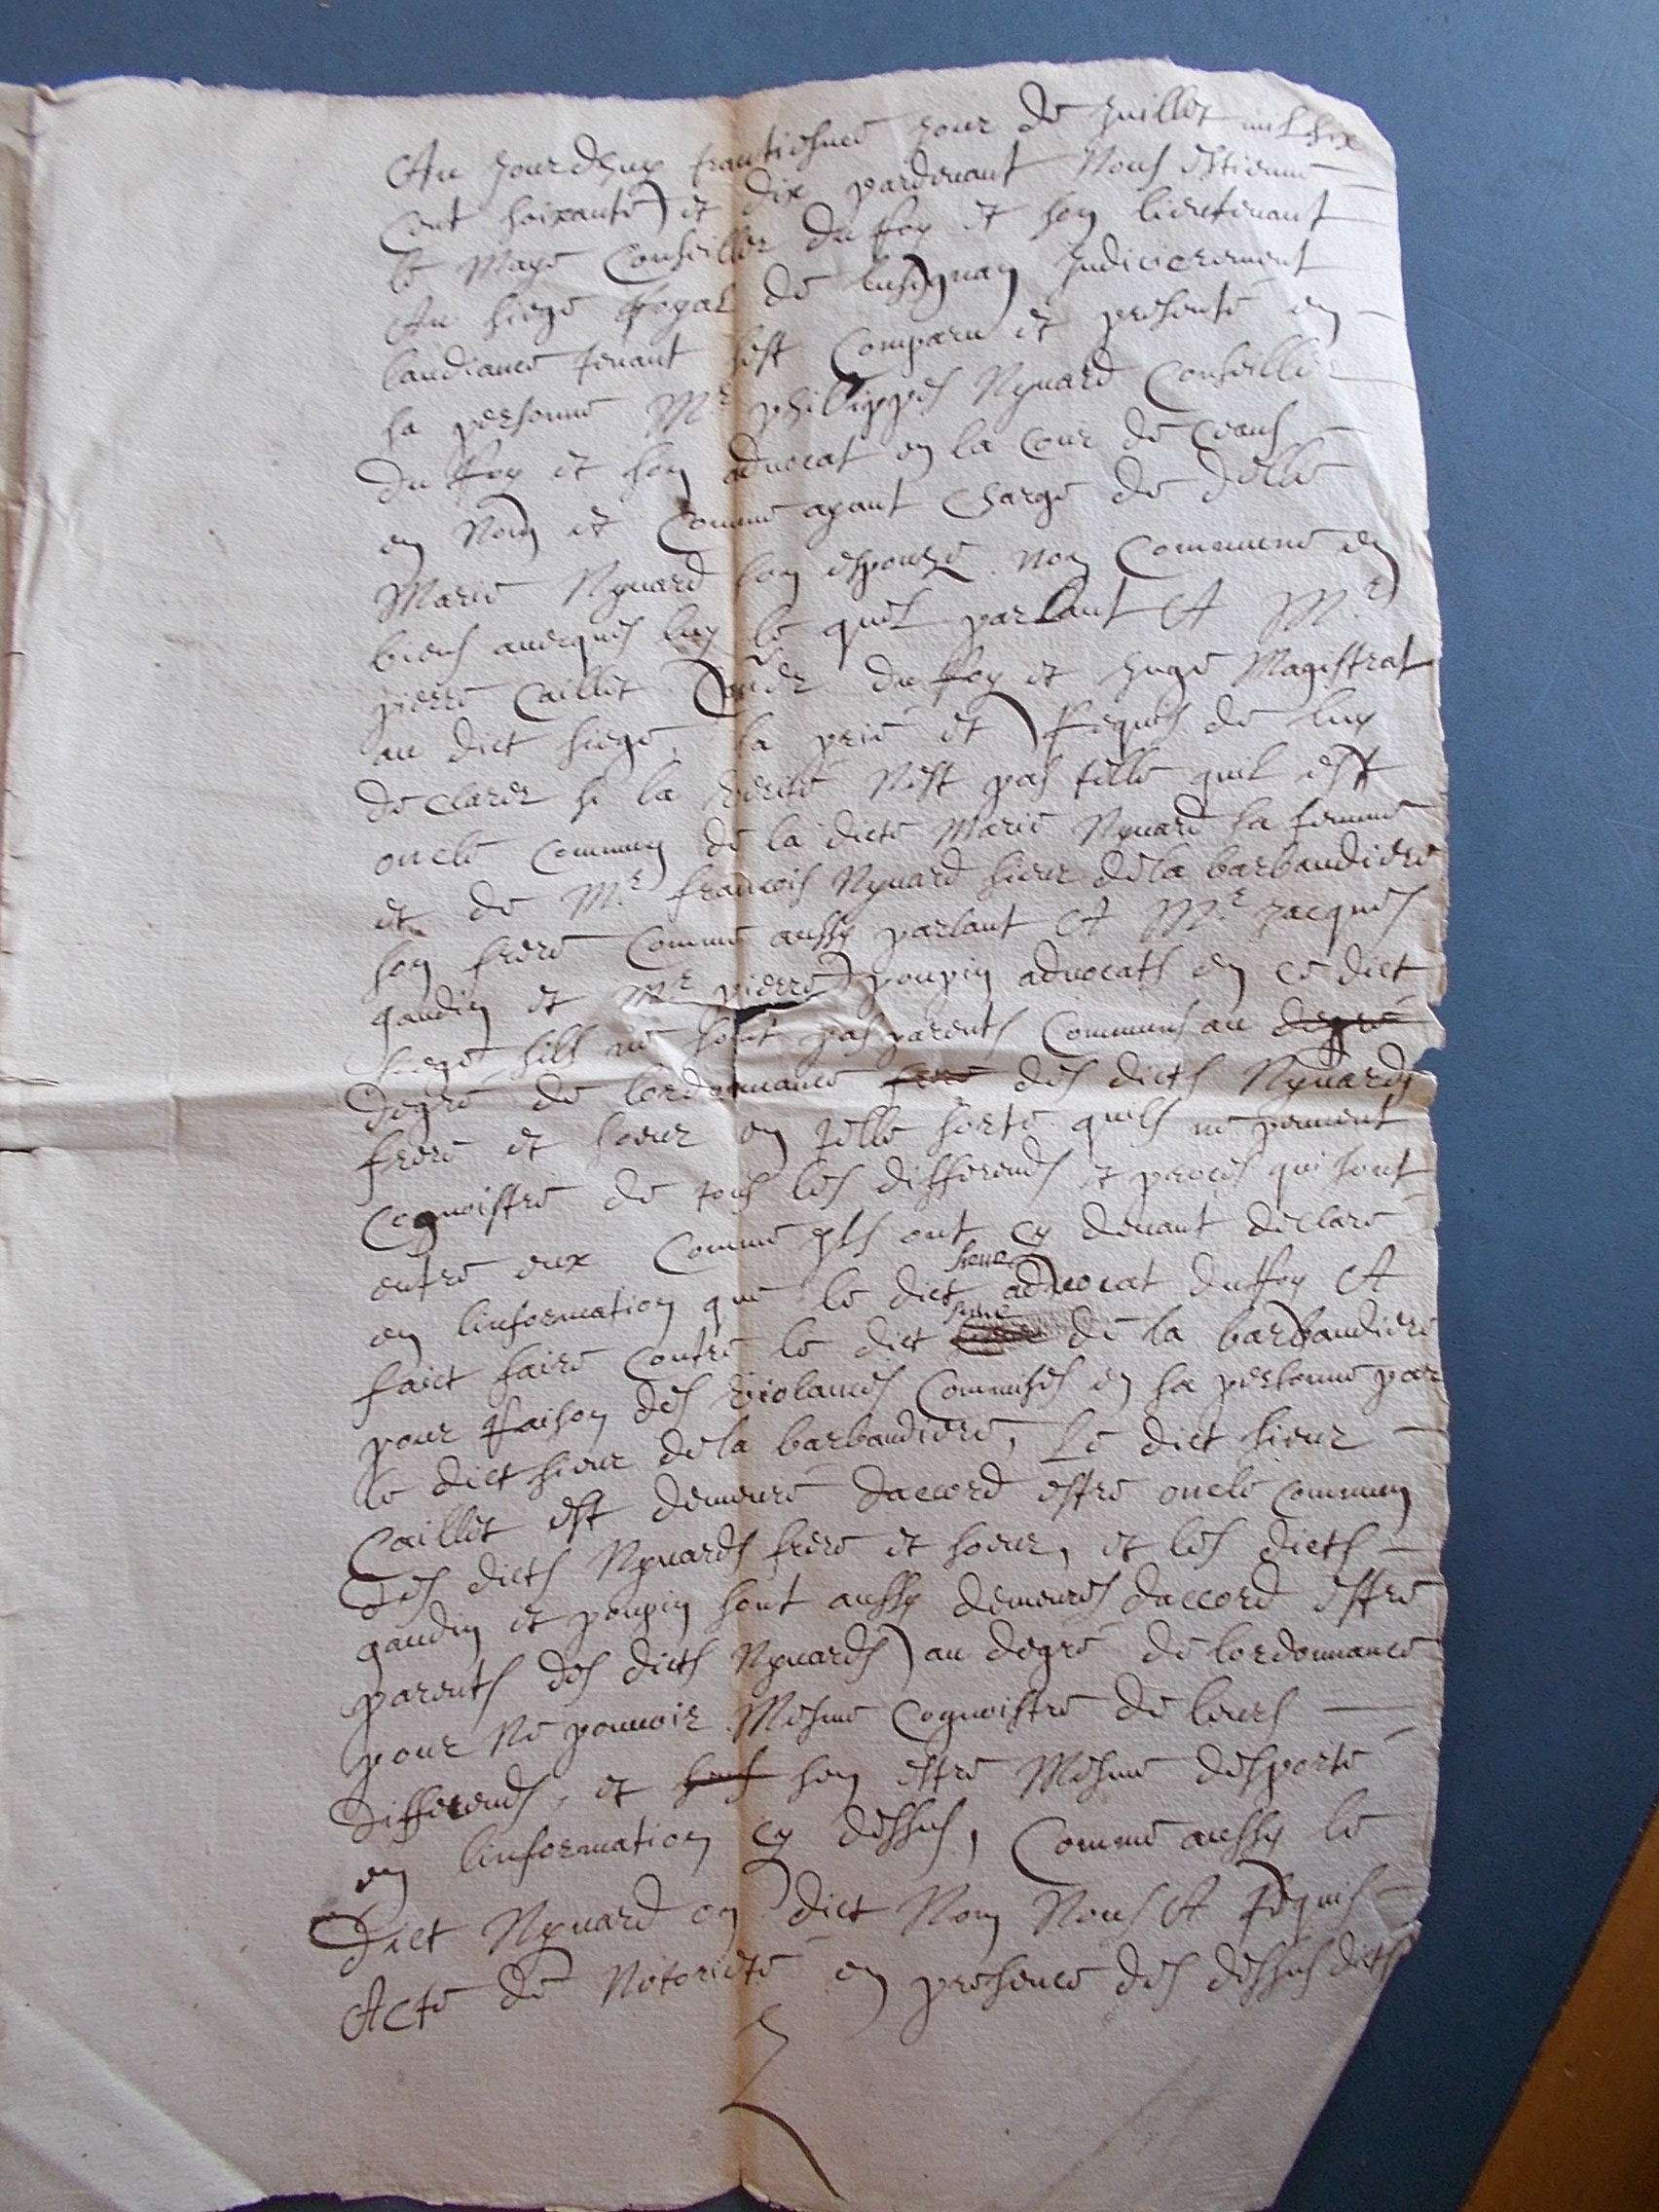 Au jourdhuy trantiesme jour de juillet mil six
cent soixante et dix pardevant Nous Estienne
le Maye Conseiller du Roy et son lieutenant
Au siege Royal de lusignan Judicierement
laudiance tenant sest Comparu et presenté en
sa personne Mr philippes Nyuard Conseiller
du Roy et son advocat en la Cour de Ceans
en Nom et Comme ayant Charge de delle
Marie Nyuard son espouze non Commune en
biens avecques luy le quel parlant A Mr
pierre Caillet Coner du Roy et Juge Magistrat
au dict siege, la prié et Requis de luy
declarer si la verité Nest pas telle quil est
oncle Commun de la dicte Marie Nyuard sa femme
et de Mr francois Nyuard sieur dela barbaudiere
son frere Comme aussy parlant A Mr Jacques
gaudin et Mr pierre poupin advocats en ce dict
siege sills ne sont pas parents Communs au degré
degré de lordonnance des dicts Nyuards
frere et soeur en telle sorte quils ne peuvent
Cognoistre de tous les differends et proces qui sont
entre eux Comme ylls ont cy devant declaré
en linformation que le dict sieur advocat du Roy A
faict faire contre le dict sieur de la barbaudiere
pour Raison des violances Commises en sa personne par
le dict sieur dela barbaudiere, Le dict sieur
Caillet est demeuré daccord estre oncle Commun
des dicts Nyuards frere et soeur, et les dicts
gaudin et poupin sont aussy demeurés daccord estre
parents des dicts Nyuards au degré de lordonnance
pour Ne pouvoir Mesme Cognoistre de leurs
differends, et sen estre Mesme desporté
en linformation cy dessus, Comme aussy le
dict Nyuard on dict Nom Nous A Requis
Acte de Notorieté en presence des dessus dicts